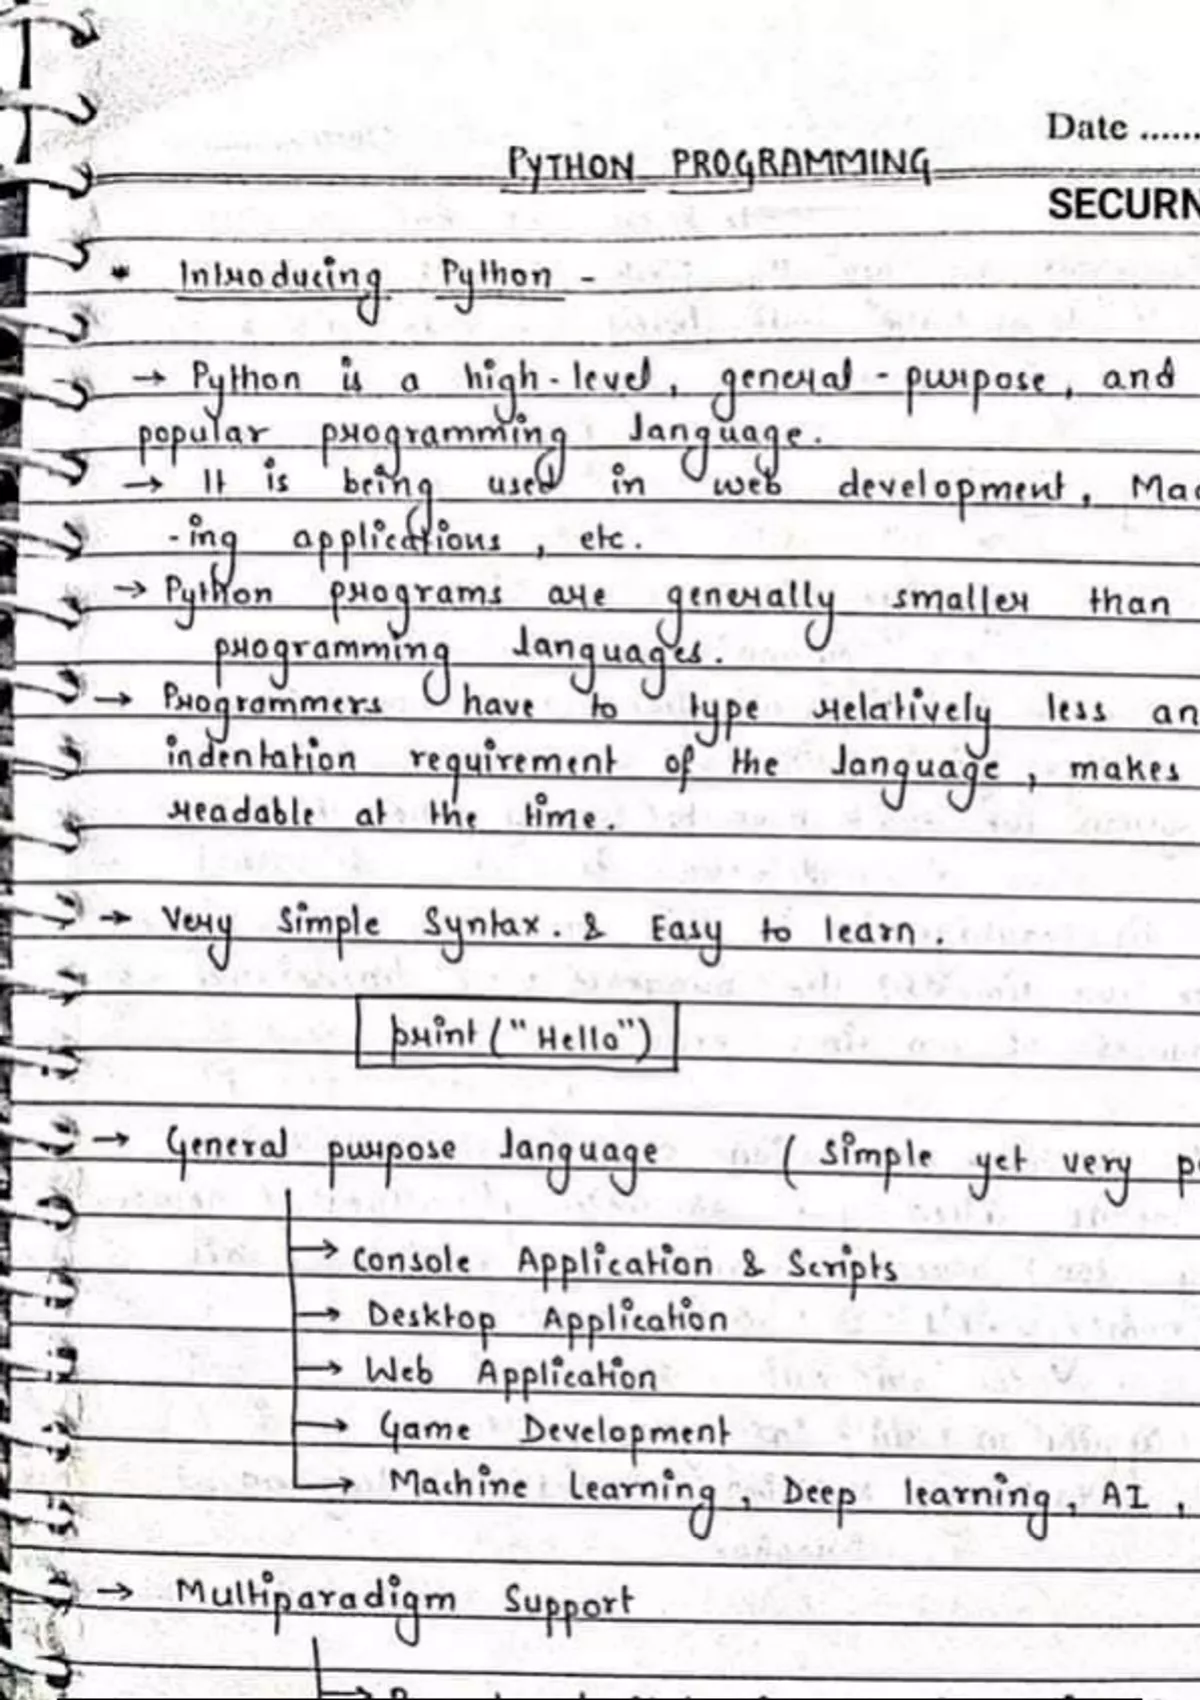 Date ......
PYTHON PROGRAMMING
SECURN
* Introducing Python -
→ Python is a high-level, general-purpose, and
popular programming language.
→ It is being used in web development, Mac
-ing applications, etc.
→ Python programs are generally smaller than
programming languages.
→ Programmers have to type relatively less an
indentation requirement of the language, makes
readable at the time.
→ Very Simple Syntax. & Easy to learn.
print ("Hello")
→ General purpose language (Simple yet very p
→ Console Application & Scripts
→ Desktop Application
→ Web Application
→ Game Development
→ Machine Learning, Deep learning, AI,
→ Multiparadigm Support